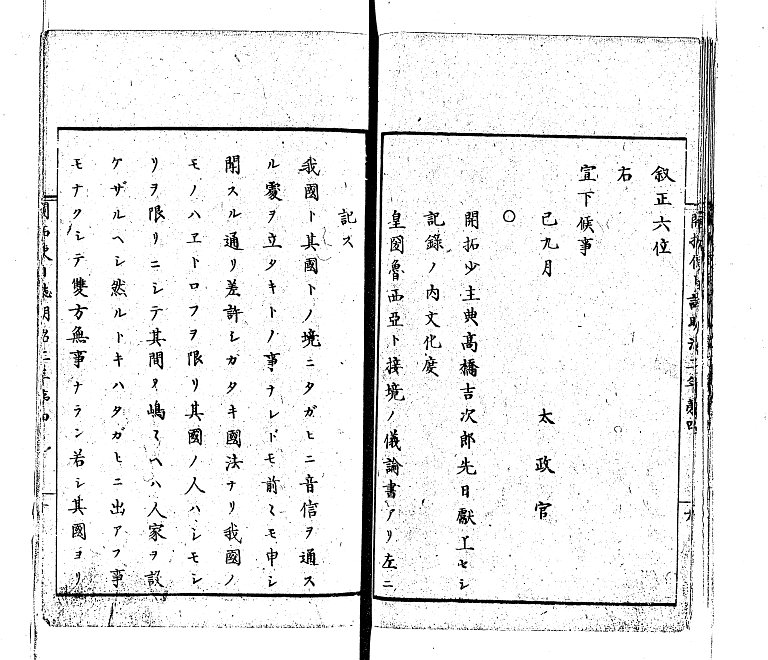 叙正六位
右
宣下候事
己九月
太政官
〇
開拓少主典高橋吉次郎先日獻上セシ
記録ノ内文化度
皇国魯西亞ト接境ノ儀論書アリ左ニ
記ス
我國ト其國トノ境ニタガヒニ音信ヲ通ス
ル處ヲ立タキトノ事ナレドモ前〻モ申シ
聞スル通リ差許シガタキ國法ナリ我國ノ
モノハヱトロフヲ限リ其國ノ人ハシモシ
リヲ限リニシテ其間ノ嶋〻ヘハ人家ヲ設
ケザルヘシ然ルトキハタガヒニ出アフ事
モナクシテ雙方無事ナラン若シ其國ヨリ
開拓使日誌明治二年第四